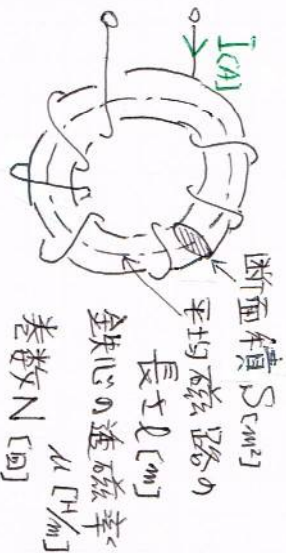 I[A]
断面積S[m²]
平均磁路の
長さl[m]
鉄心の透磁率
μ[H/m]
巻数N[回]